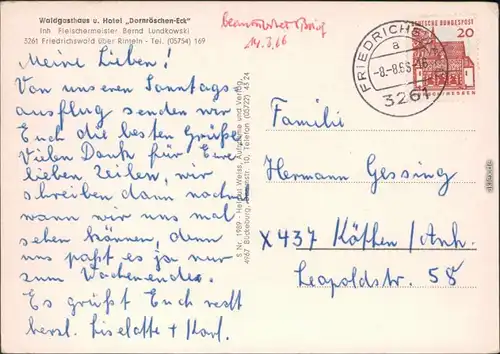 Waldgasthaus u. Hotel „Dornröschen-Eck"
Inh. Fleischermeister Bernd Lundkowski
3261 Friedrichswald über Rinteln - Tel. (05754) 169
Beantwortet Brief
14.8.66
FRIEDRICHSWALD
a
-8.-8.66-16
3261
DEUTSCHE BUNDESPOST
20
Meine Lieben!
Von unseren Sonntags
ausflug senden wir
Euch die besten Grüße
Vielen Dank für Eure
lieben Zeilen, wir
schreiben dann noch
wann wir uns mal
sehen können, denn
uns paßt es ja nur
zum Wochenende.
Es grüßt Euch recht
herzl. Liselotte + Karl.
S. Nr. 1989 - Helmut Weiss, Aufnahme und Verlag,
4967 Bückeburg, 10, Telefon (05722) 45 24
Familie
Hermann Gessing
X 437 Köthen/Anh.
Leopoldstr. 58